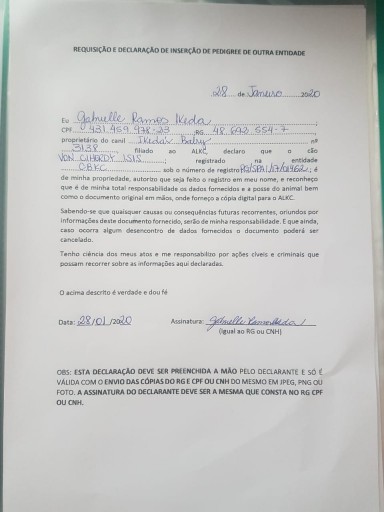 REQUISIÇÃO E DECLARAÇÃO DE INSERÇÃO DE PEDIGREE DE OUTRA ENTIDADE
28 de Janeiro 2020
Eu Gabrielle Ramos Ikeda
CPF 431.459.978-23 RG 48.692.554-7
proprietário do canil Ikeda's Baby nº
3138 filiado ao ALKC, declaro que o cão
VON CIHERDY ISIS registrado na entidade
CBKC sob o número de registro é
de minha propriedade, autorizo que seja feito o registro em meu nome, e reconheço
que é de minha total responsabilidade os dados fornecidos e a posse do animal bem
como o documento original em mãos, onde forneço a cópia digital para o ALKC.
Sabendo-se que quaisquer causas ou consequências futuras recorrentes, oriundos por
informações deste documento fornecido, serão de minha responsabilidade. E que ainda,
caso ocorra algum desencontro de dados fornecidos o documento poderá ser
cancelado.
Tenho ciência dos meus atos e me responsabilizo por ações cíveis e criminais que
possam recorrer as informações aqui declaradas.
O acima descrito é verdade e dou fé
Data: 28/01/2020 Assinatura: Gabrielle Ramos Ikeda
(igual ao RG ou CNH)
OBS: ESTA DECLARAÇÃO DEVE SER PREENCHIDA A MÃO PELO DECLARANTE E SÓ É
VÁLIDA COM O ENVIO DAS CÓPIAS DO RG E CPF OU CNH DO MESMO EM JPEG, PNG OU
FOTO. A ASSINATURA DO DECLARANTE DEVE SER A MESMA QUE CONSTA NO RG CPF
OU CNH.